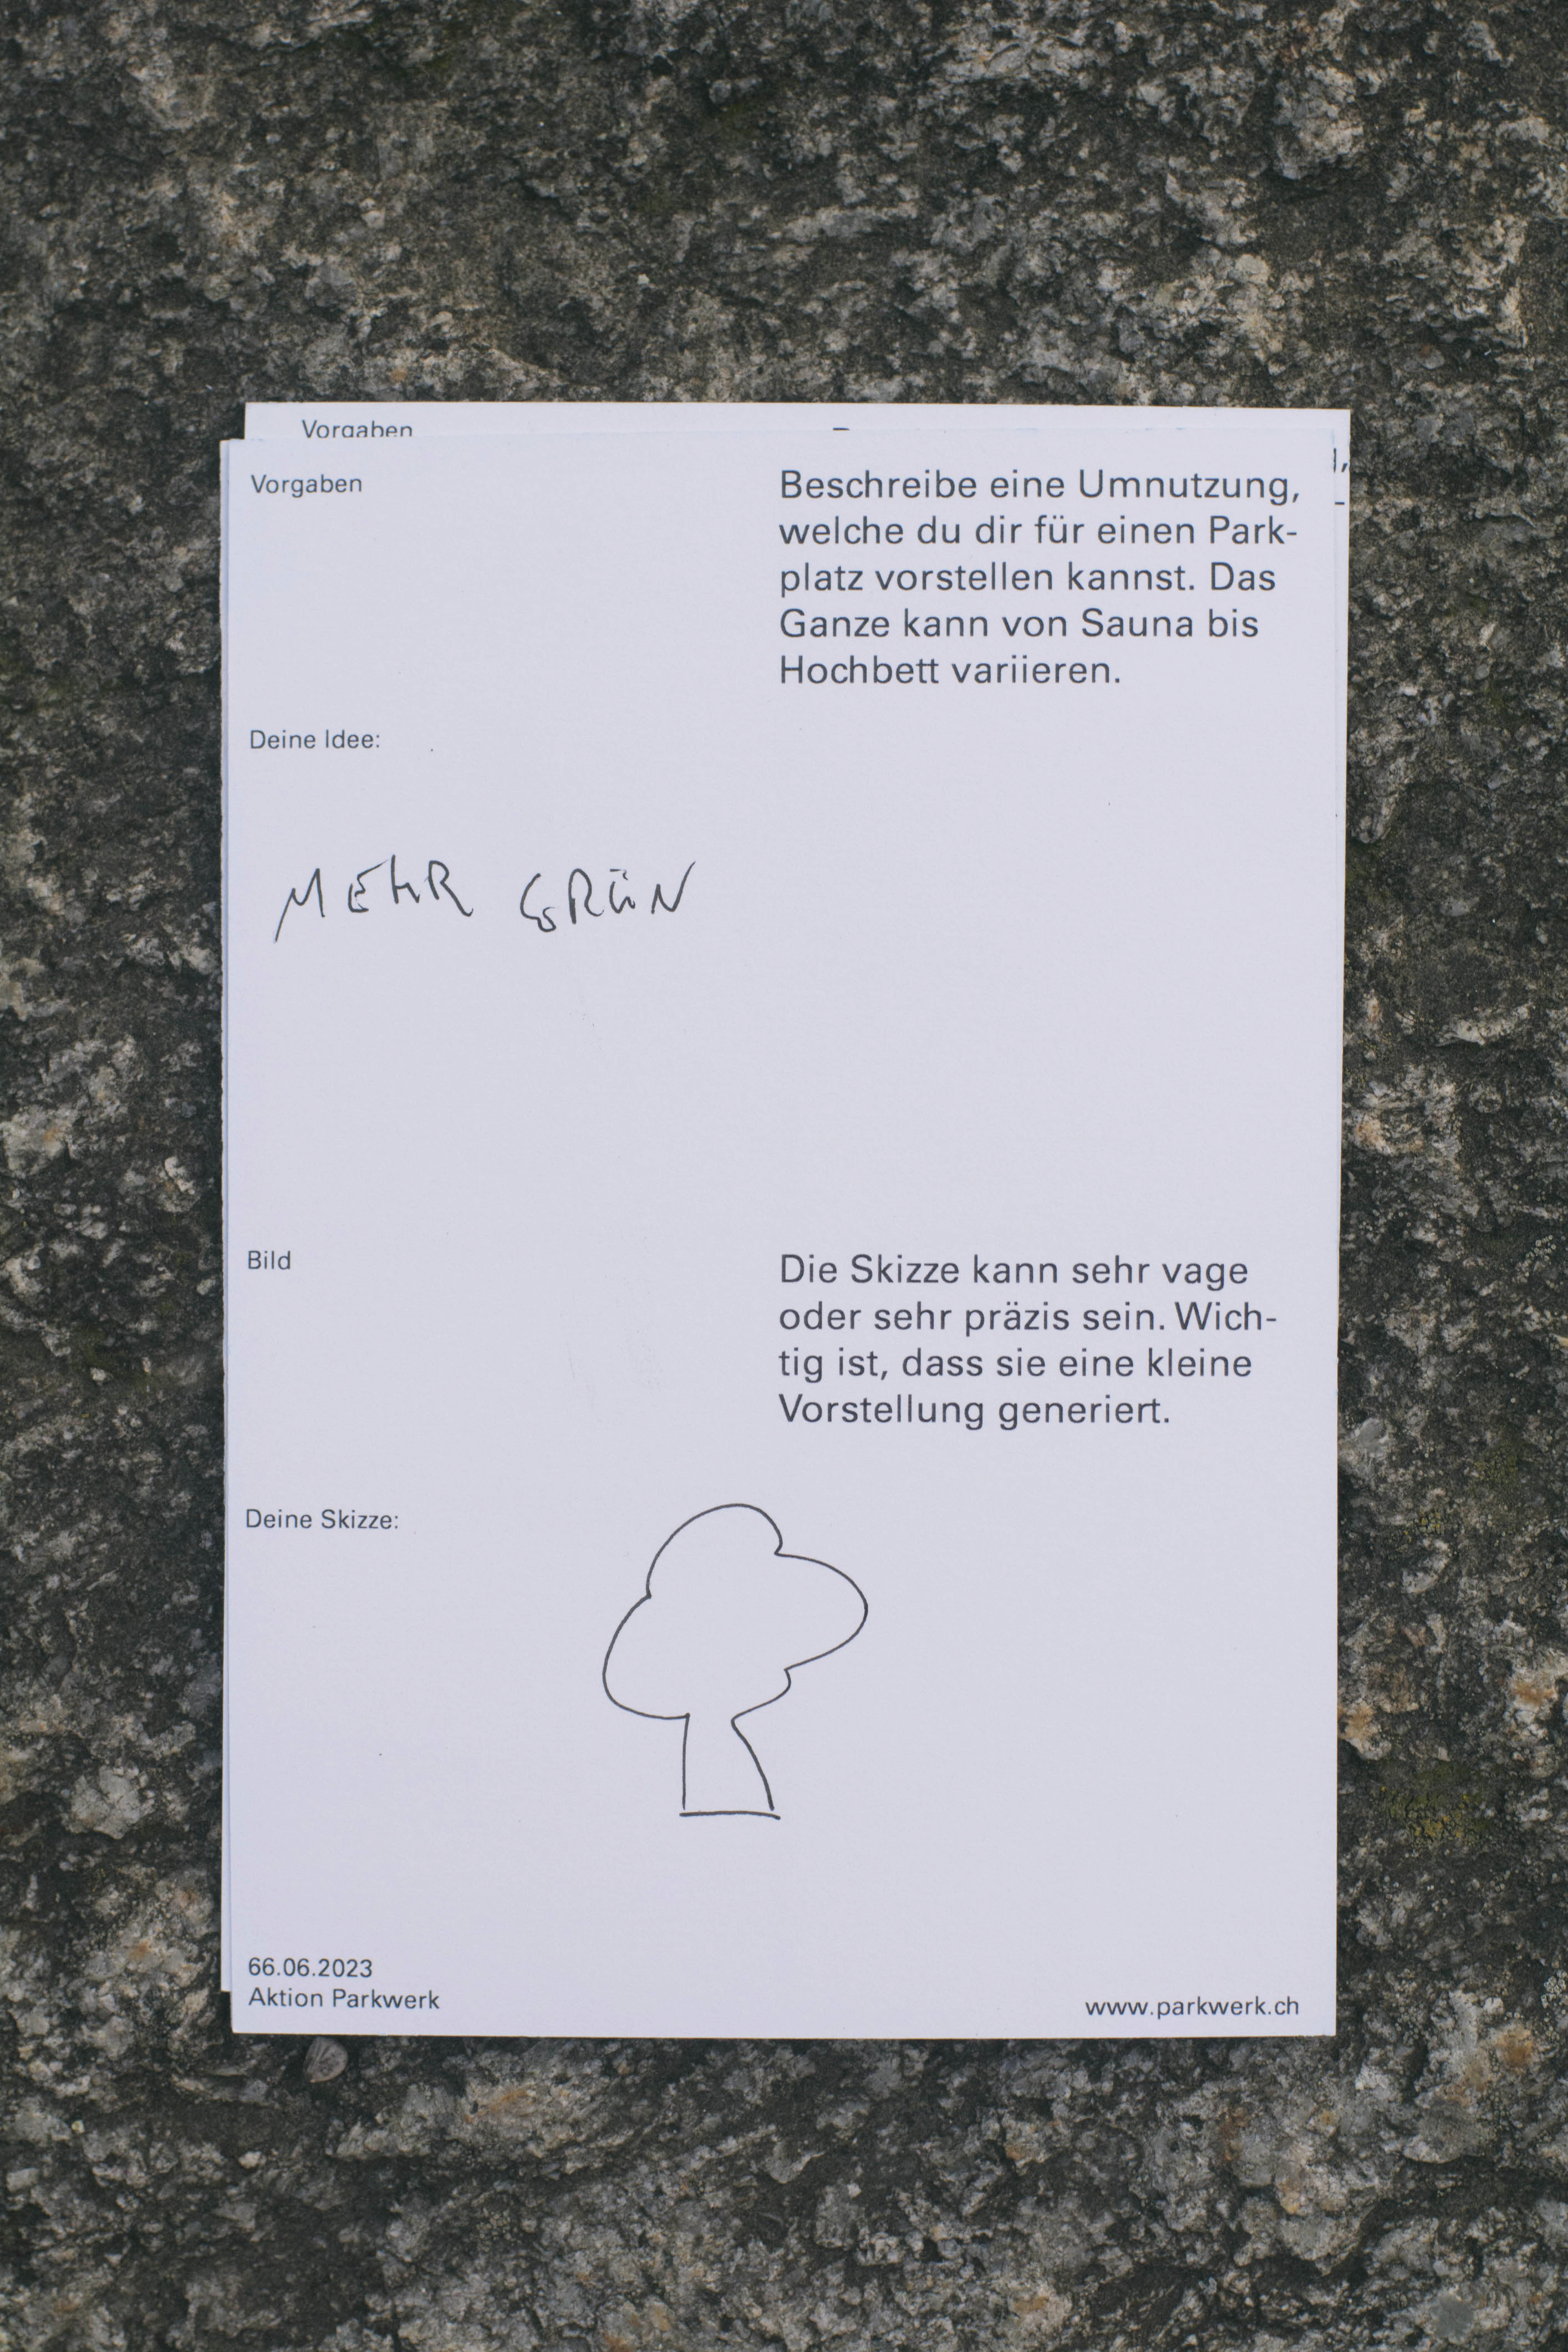 Vorgaben
Vorgaben
Beschreibe eine Umnutzung,
welche du dir für einen Park-
platz vorstellen kannst. Das
Ganze kann von Sauna bis
Hochbett variieren.
Deine Idee:
MEHR GRÜN
Bild
Die Skizze kann sehr vage
oder sehr präzis sein. Wich-
tig ist, dass sie eine kleine
Vorstellung generiert.
Deine Skizze:
66.06.2023
Aktion Parkwerk
www.parkwerk.ch